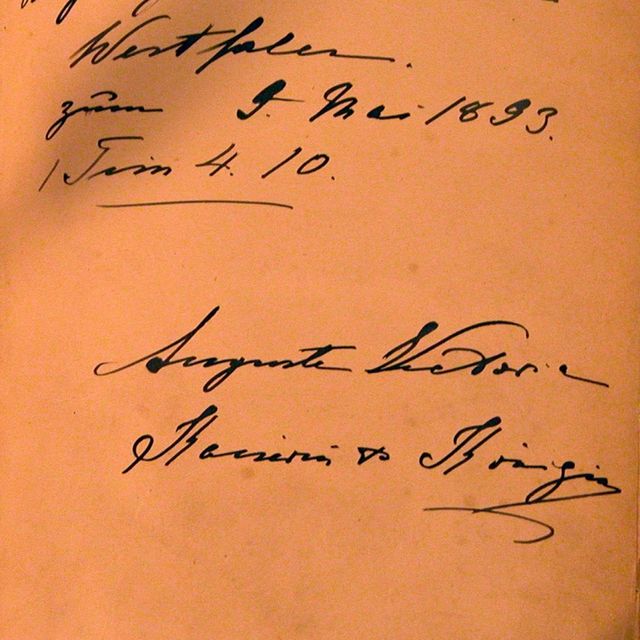 Westfalen.
zum 9. Mai 1893.
1 Tim 4. 10.
Auguste Victoria
Kaiserin & Königin